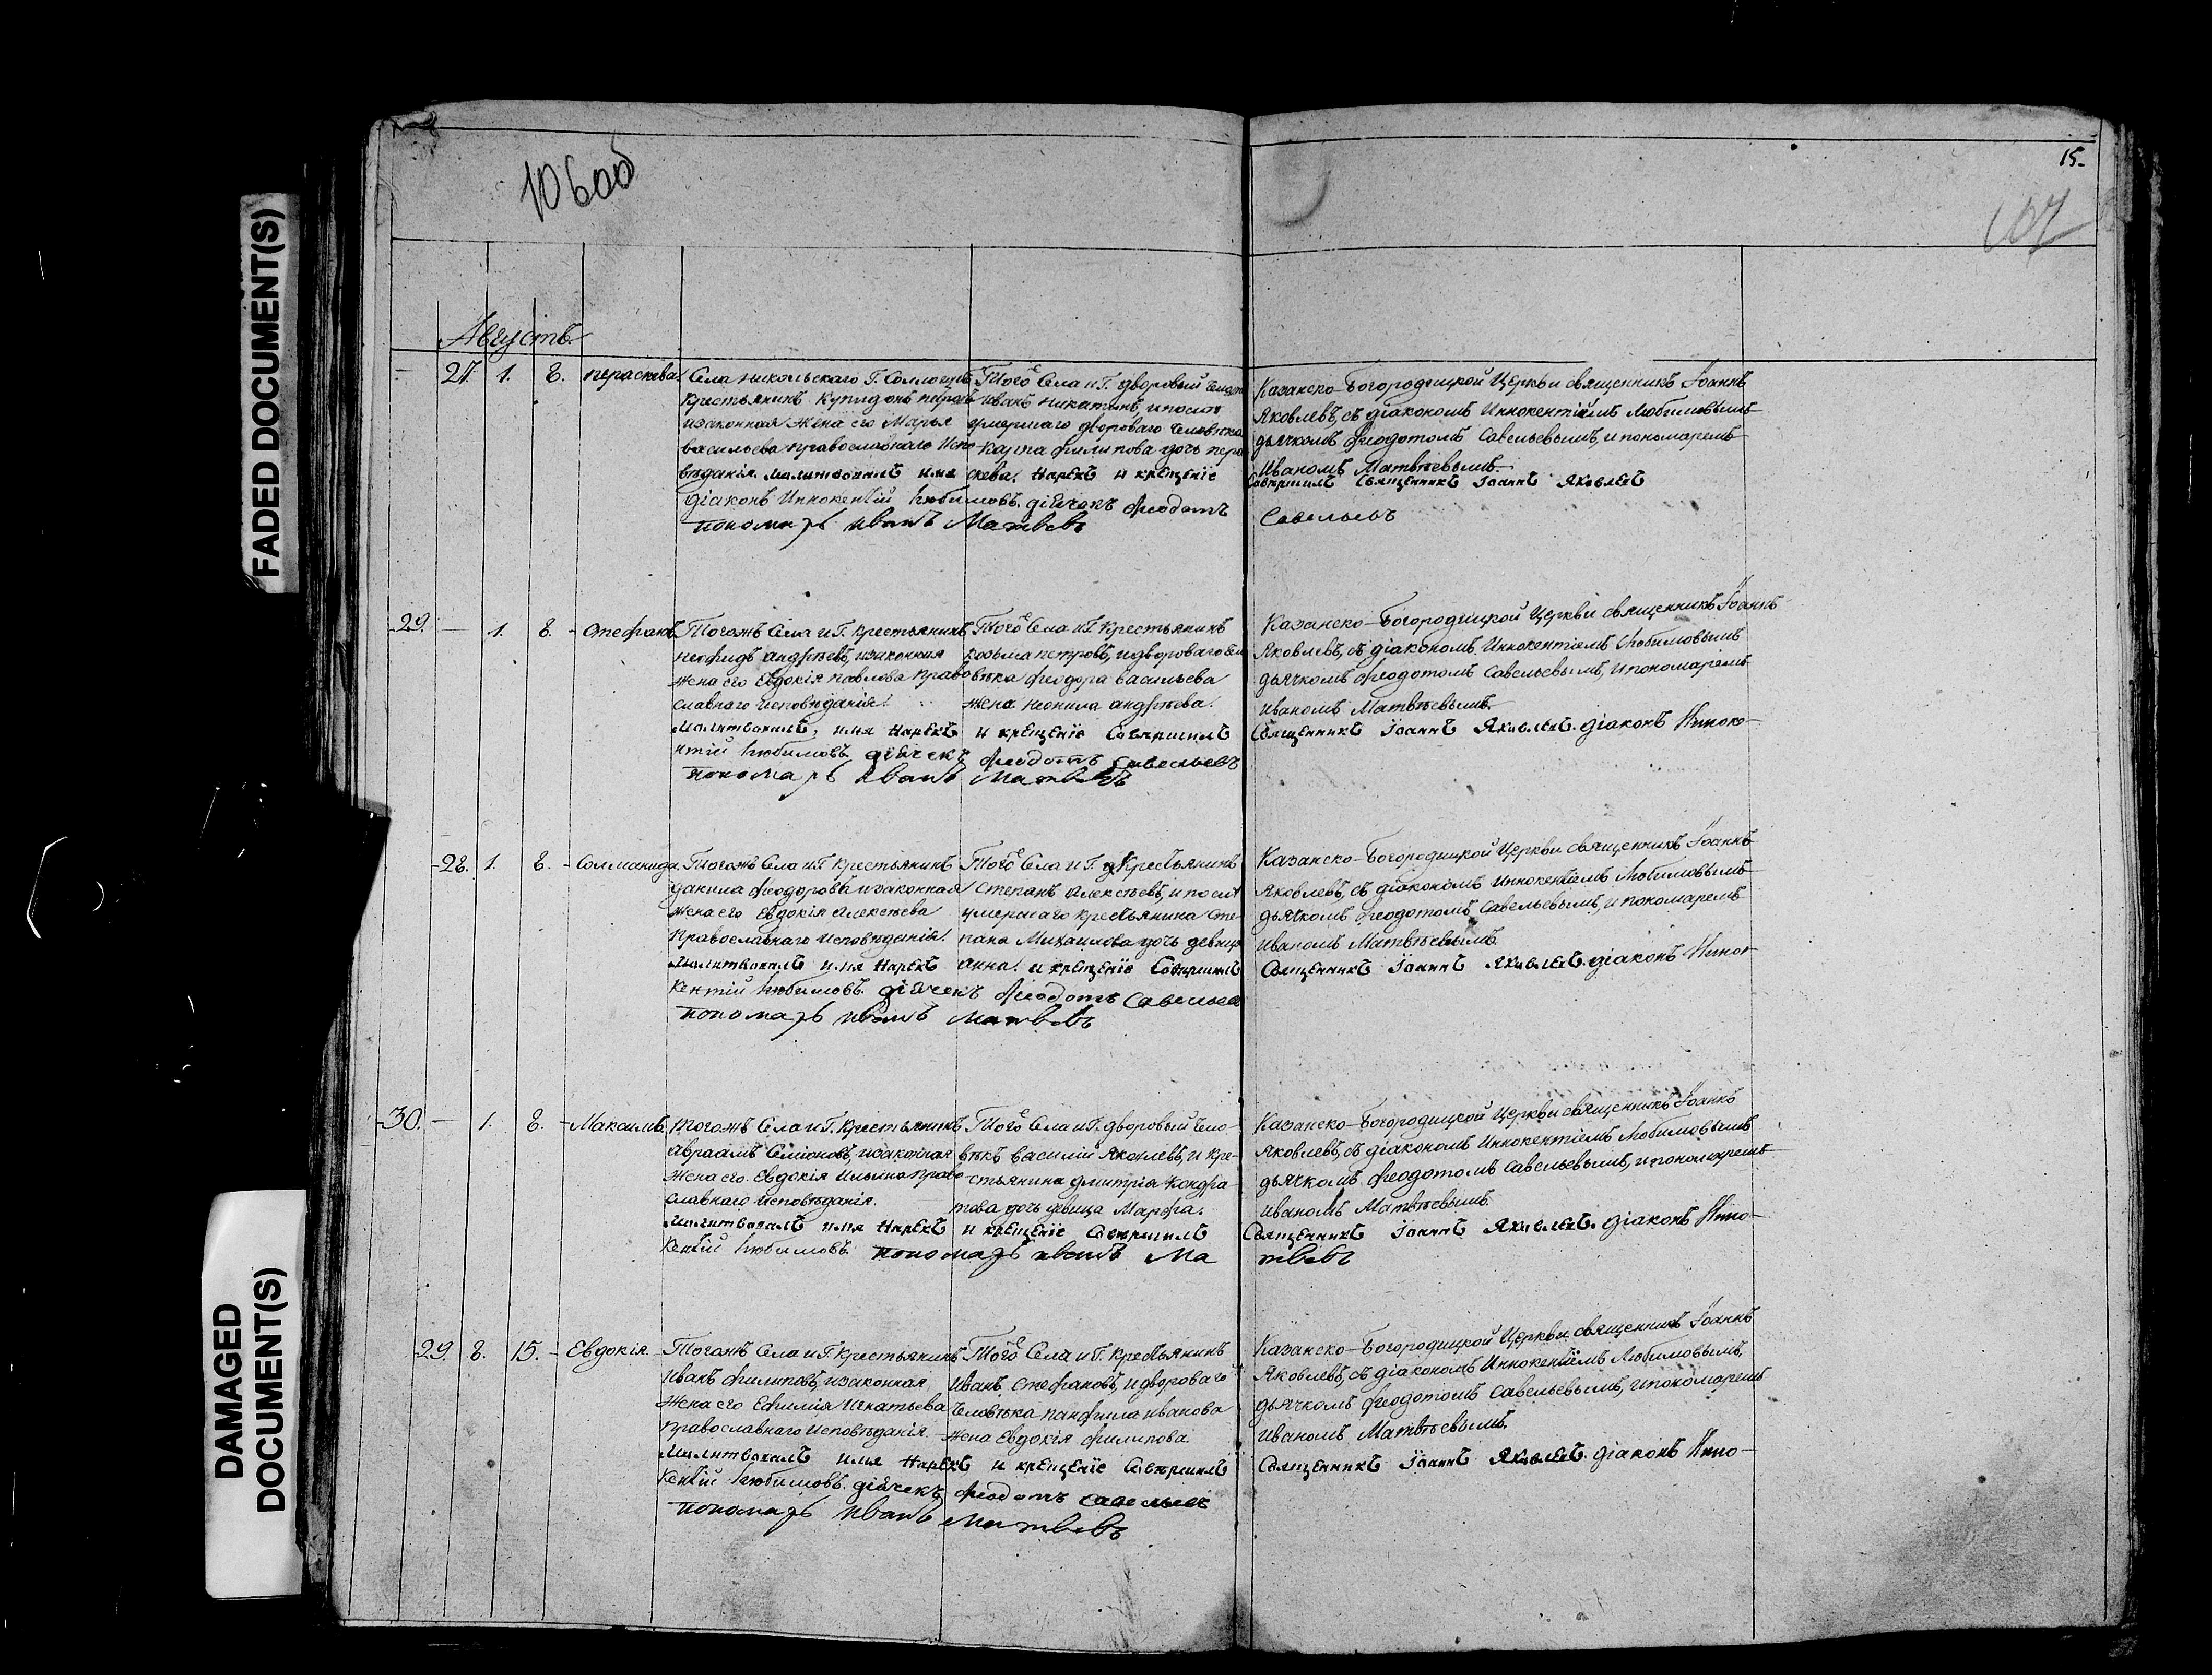 FADED DOCUMENT(S)
DAMAGED
DOCUMENT(S)
106об
15.
107
Августъ.
27. 1. 8. Пераскева.
Села Никольскаго Г.
Крестьянинъ Купидонъ
изаконная жена его Марья
васильева православнаго Испо-
вѣданія. молитвовалъ имя
діаконъ Иннокентій Любимовъ. діячекъ Феодотъ
пономарь Иванъ Матвевъ
Того Села и Г. дворовый
иванъ никитинъ, и посли
умершаго двороваго человѣка
Карпа филипова дочь пера
скева. нарекъ и крещеніе
Казанско-Богородицкой Церкви священникъ Іоаннъ
Яковлевъ, съ діакономъ Иннокентіемъ Любимовымъ
дьячкомъ Феодотомъ Савельевымъ, и пономаремъ
Иваномъ Матвѣевымъ.
Совершилъ Священникъ Іоаннъ Яковлевъ
Савельевъ
29. — 1. 8. - Стефанъ.
Тогожъ Села и Г. Крестьянинъ
андрѣевъ, изаконная
жена его Евдокія Павлова право
славнаго исповѣданія.
Молитвовалъ, имя нарекъ
нтій Любимовъ. діячекъ Феодотъ Савельевъ
пономарь Иванъ Матвевъ
Того Села и Г. Крестьянинъ
козьма петровъ, и двороваго чел
вѣка феодора васильева
жена неонила андрѣева.
и крещеніе Совершилъ
Казанско-Богородицкой Церкви священникъ Іоаннъ
Яковлевъ, съ діакономъ Иннокентіемъ Любимовымъ
дьячкомъ Феодотомъ Савельевымъ, и пономаремъ
иваномъ Матвѣевымъ.
Священникъ Іоаннъ Яковлевъ. діаконъ Инноке-
-28. 1. 8. - Солманида.
Тогожъ Села и Г. Крестьянинъ
данила Феодоровъ изаконная
жена его Евдокія Алексѣева
Православнаго исповѣданія.
Молитвовалъ имя нарекъ
кентій Любимовъ. діячекъ Феодотъ Савельевъ
пономарь Иванъ Матвевъ
Того Села и Г. Крестьянинъ
Степанъ Алексѣевъ, и посли
умершаго крестьянина Сте-
пана Михаилова дочь девица
анна. и крещеніе Совершилъ
Казанско-Богородицкой Церкви священникъ Іоаннъ
Яковлевъ, съ діакономъ Иннокентіемъ Любимовымъ
дьячкомъ Феодотомъ Савельевымъ, и пономаремъ
иваномъ Матвѣевымъ.
Священникъ Іоаннъ Яковлевъ. діаконъ Инно-
30. — 1. 8. - Максимъ.
Тогожъ Села и Г. Крестьянинъ
Авраамъ Семіоновъ, изаконная
жена его Евдокія Ильина право
славнаго исповѣданія.
Молитвовалъ имя нарекъ
кентій Любимовъ. пономарь Иванъ Ма
Того Села и Г. дворовый чело-
вѣкъ василій Яковлевъ, и кре-
стьянина дмитрія Кондра-
това дочь девица Марфа.
и крещеніе Совершилъ
Казанско-Богородицкой Церкви священникъ Іоаннъ
Яковлевъ, съ діакономъ Иннокентіемъ Любимовымъ
дьячкомъ Феодотомъ Савельевымъ, и пономаремъ
иваномъ Матвѣевымъ.
Священникъ Іоаннъ Яковлевъ. діаконъ Инно-
твевъ
29. 8. 15. - Евдокія.
Тогожъ Села и Г. Крестьянинъ
Иванъ Филиповъ, изаконная
жена его Ефимія Игнатьева
Православнаго исповѣданія.
Молитвовалъ имя нарекъ
кентій Любимовъ. діячекъ Феодотъ Савельевъ
пономарь Иванъ Матвевъ
Того Села и Г. Крестьянинъ
Иванъ Стефановъ, и двороваго
человѣка панфила иванова
жена Евдокія филипова.
и крещеніе Совершилъ
Казанско-Богородицкой Церкви священникъ Іоаннъ
Яковлевъ, съ діакономъ Иннокентіемъ Любимовымъ,
дьячкомъ Феодотомъ Савельевымъ, и пономаремъ
иваномъ Матвѣевымъ.
Священникъ Іоаннъ Яковлевъ. діаконъ Инно-